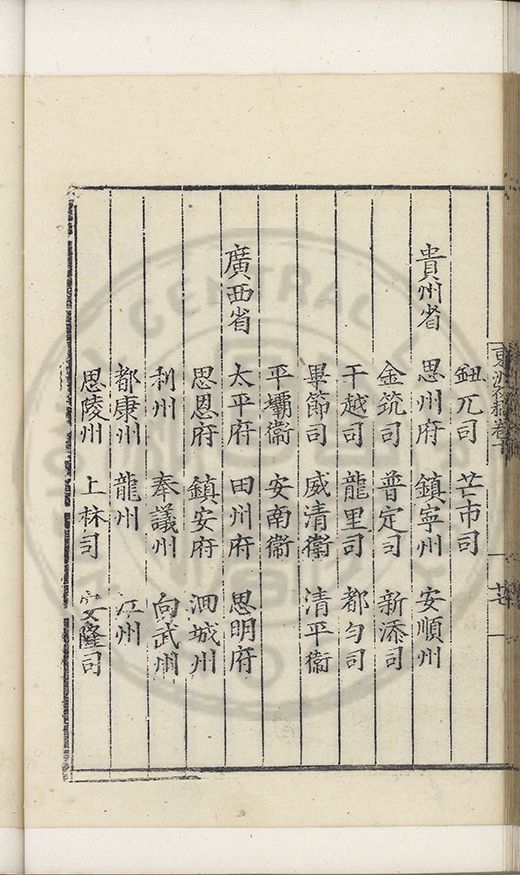 鈕兀司 芒市司
貴州省 思州府 鎮寧州 安順州
金筑司 普定司 新添司
干越司 龍里司 都勻司
畢節司 威清衛 清平衛
平壩衞 安南衞
廣西省 太平府 田州府 思明府
思恩府 鎮安府 泗城州
利州 奉議州 向武州
都康州 龍州 江州
思陵州 上林司 安隆司
CENTRAL